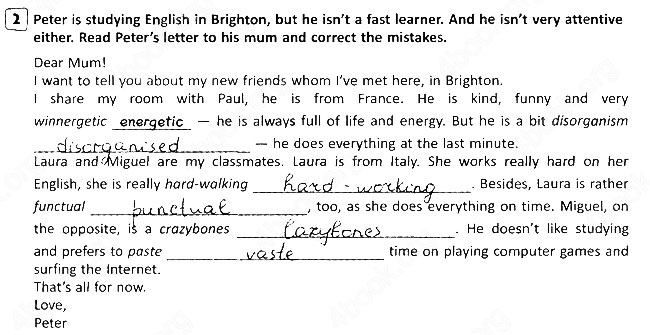 2 Peter is studying English in Brighton, but he isn't a fast learner. And he isn't very attentive
either. Read Peter's letter to his mum and correct the mistakes.
Dear Mum!
I want to tell you about my new friends whom I've met here, in Brighton.
I share my room with Paul, he is from France. He is kind, funny and very
winnergetic energetic — he is always full of life and energy. But he is a bit disorganism
disorganised — he does everything at the last minute.
Laura and Miguel are my classmates. Laura is from Italy. She works really hard on her
English, she is really hard-walking hard-working. Besides, Laura is rather
functual punctual, too, as she does everything on time. Miguel, on
the opposite, is a crazybones lazybones. He doesn't like studying
and prefers to paste vaste time on playing computer games and
surfing the Internet.
That's all for now.
Love,
Peter